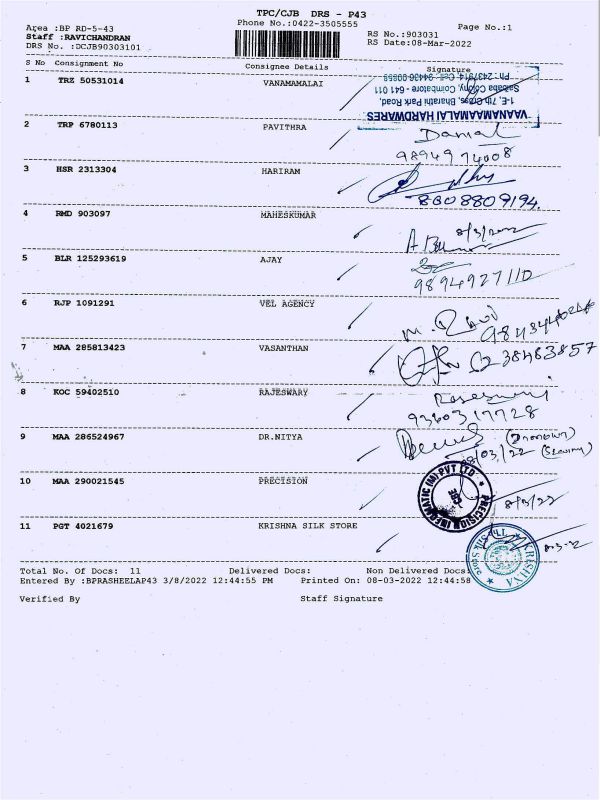 TPC/CJB DRS - P43
Area :BP RD-5-43 Phone No.:0422-3505555 Page No.:1
Staff :RAVICHANDRAN RS No.:903031
DRS No. :DCJB90303101 RS Date:08-Mar-2022
S No Consignment No Consignee Details Signature
1 TRZ 50531014 VANAMAMALAI
VAANAMAAMALAI HARDWARES
1-E, 7th Cross, Bharathi Park Road,
Saibaba Colony, Coimbatore - 641 011
2 TRP 6780113 PAVITHRA
9894974008
3 HSR 2313304 HARIRAM
8608809194
4 RMD 903097 MAHESKUMAR
8/3/2022
5 BLR 125293619 AJAY
9894927110
6 RJP 1091291 VEL AGENCY
7 MAA 285813423 VASANTHAN
8 KOC 59402510 RAJESWARY
9360317728
9 MAA 286524967 DR.NITYA
08/03/22
10 MAA 290021545 PRECISION
PRECISION INFOMATIC (M) PVT LTD
CBE
8/3/22
11 PGT 4021679 KRISHNA SILK STORE
KRISHNA
Total No. Of Docs: 11 Delivered Docs: Non Delivered Docs:
Entered By :BPRASHEELAP43 3/8/2022 12:44:55 PM Printed On: 08-03-2022 12:44:58
Verified By Staff Signature